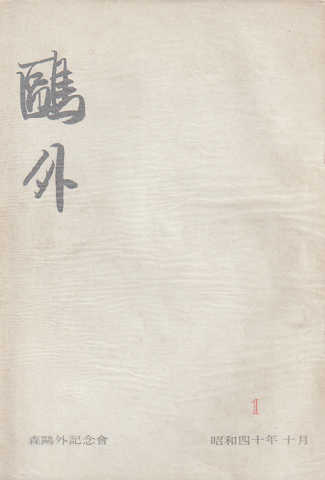 鷗外
1
森鷗外記念會
昭和四十年十月